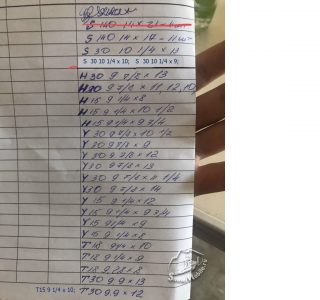 S 140 14 × 17 - 11 шт
S 30 10 1/4 × 11
S 30 10 1/4 x 10; S 30 10 1/4 x 9;
H30 9 7/8 × 13
H30 9 7/8 × 11, 12, 10
H15 9 1/4 × 8
H15 9 1/4 × 10 1/2
H15 9 1/4 × 9 3/4
Y 30 9 7/8 × 10 1/2
Y 30 9 7/8 × 9
Y 30 9 7/8 × 12
Y 30 9 7/8 × 13
Y 30 9 7/8 × 8 1/4
Y 30 9 7/8 × 14
Y 15 9 1/4 × 12
Y 15 9 1/4 × 9 3/4
Y 15 9 1/4 × 9
Y 15 9 1/4 × 8
T 18 × 10
T 18 9 1/4 × 9
T 18 × 8
T 30 9.9 × 13
T15 9 1/4 x 10; T 30 9.9 × 12